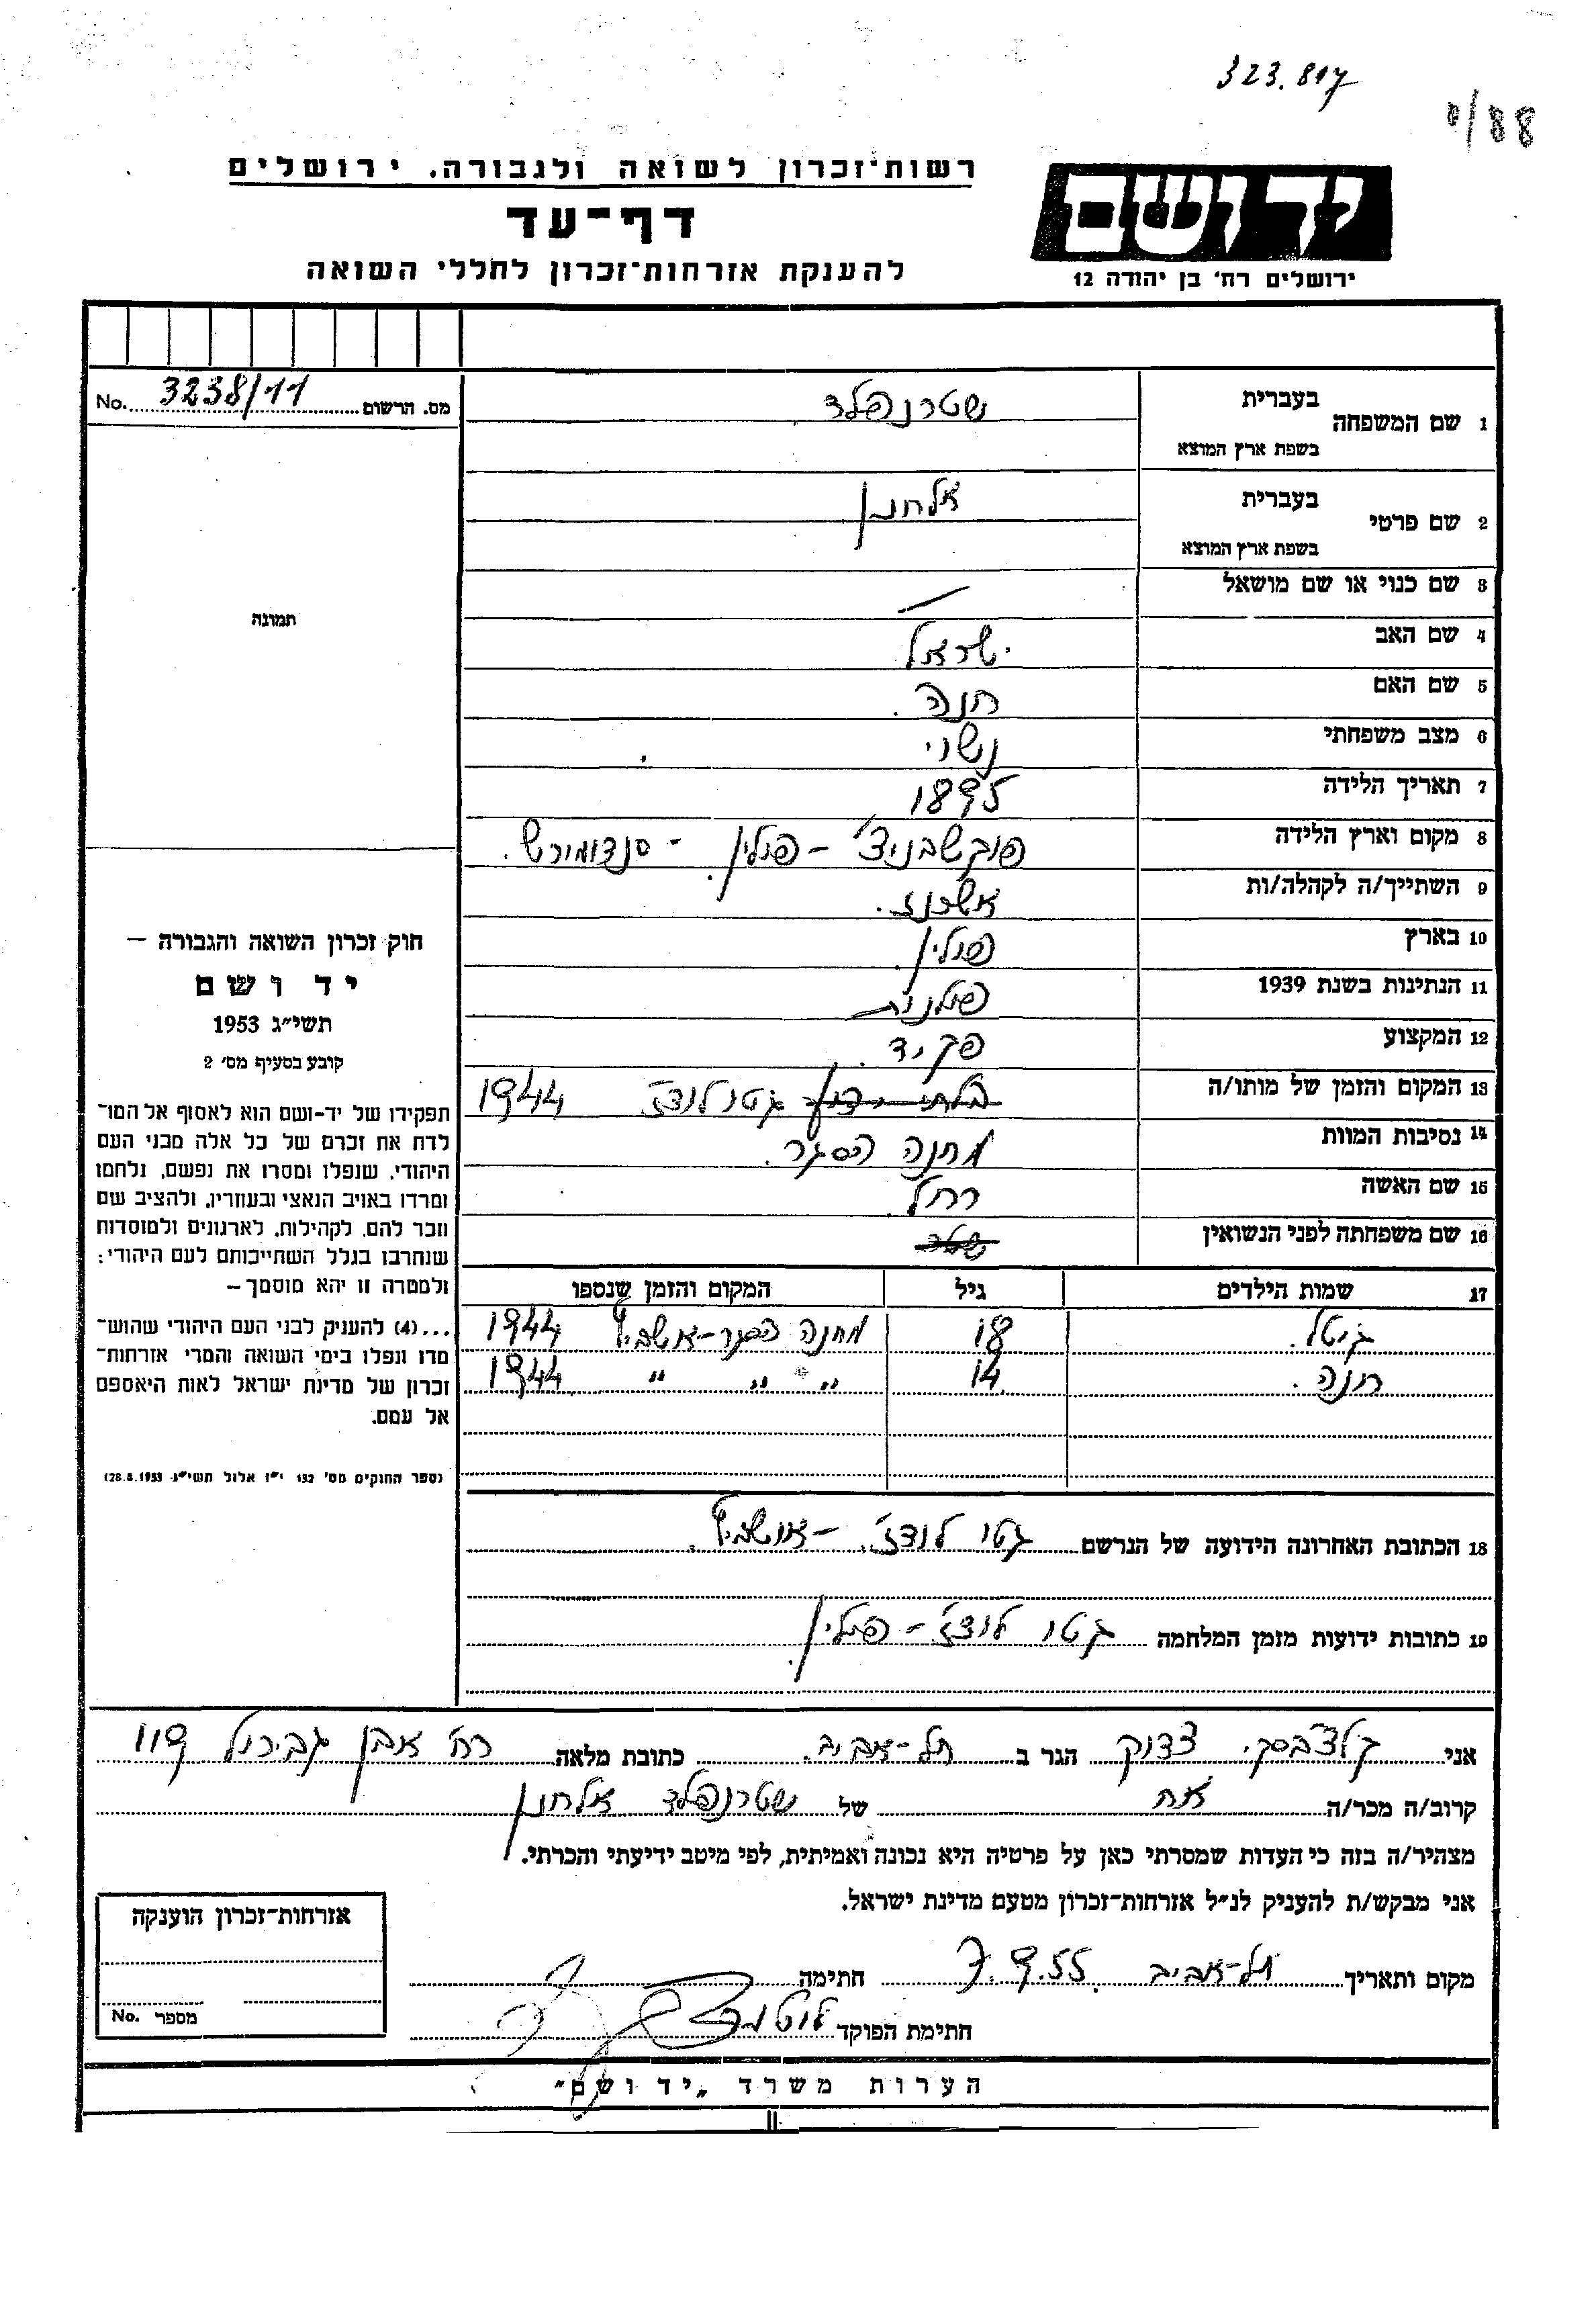 323.817
0/88
רשות־זכרון לשואה ולגבורה, ירושלים
דף־עד
להענקת אזרחות־זכרון לחללי השואה
ידושם
ירושלים רח׳ בן יהודה 12
מס. הרשום 3238/11 No.
1 שם המשפחה בעברית שטרנפלד
בשפת ארץ המוצא
2 שם פרטי בעברית אלחנן
בשפת ארץ המוצא
3 שם כנוי או שם מושאל —
4 שם האב ישראל
5 שם האם חנה.
6 מצב משפחתי נשוי
7 תאריך הלידה 1895
8 מקום וארץ הלידה – פולין. - סנדומירש.
9 השתייך/ה לקהלה/ות אשכנז.
10 בארץ פולין.
11 הנתינות בשנת 1939 פולנית
12 המקצוע פקיד.
13 המקום והזמן של מותו/ה גטו לודז 1944
14 נסיבות המוות מחנה הסגר.
15 שם האשה רחל
16 שם משפחתה לפני הנשואין
17 שמות הילדים גיל המקום והזמן שנספו
גיטל. 18 מחנה הסגר-אושביץ 1944
חנה. 14 " " " " 1944
18 הכתובת האחרונה הידועה של הנרשם גטו לודז׳. – אושביץ.
19 כתובות ידועות מזמן המלחמה גטו לודז׳ – פולין.
תמונה
חוק זכרון השואה והגבורה —
יד ושם
תשי״ג 1953
קובע בסעיף מס׳ 2
תפקידו של יד-ושם הוא לאסוף אל המו־
לדת את זכרם של כל אלה מבני העם
היהודי, שנפלו ומסרו את נפשם, נלחמו
ומרדו באויב הנאצי ובעוזריו, ולהציב שם
וזכר להם, לקהילות, לארגונים ולמוסדות
שנחרבו בגלל השתייכותם לעם היהודי;
ולמטרה זו יהא מוסמך —
...(4) להעניק לבני העם היהודי שהוש־
מדו ונפלו בימי השואה והמרי אזרחות־
זכרון של מדינת ישראל לאות היאספם
אל עמם.
(ספר החוקים מס׳ 132 י״ז אלול תשי״ג 28.8.1953)
אני צדוק הגר ב תל-אביב. כתובת מלאה רח׳ אבן גבירול 119
קרוב/ה מכר/ה אח של שטרנפלד אלחנן
מצהיר/ה בזה כי העדות שמסרתי כאן על פרטיה היא נכונה ואמיתית, לפי מיטב ידיעתי והכרתי.
אני מבקש/ת להעניק לנ״ל אזרחות־זכרון מטעם מדינת ישראל.
מקום ותאריך תל-אביב. 7.9.55 חתימה
חתימת הפוקד
אזרחות־זכרון הוענקה
מספר No.
הערות משרד „יד ושם״